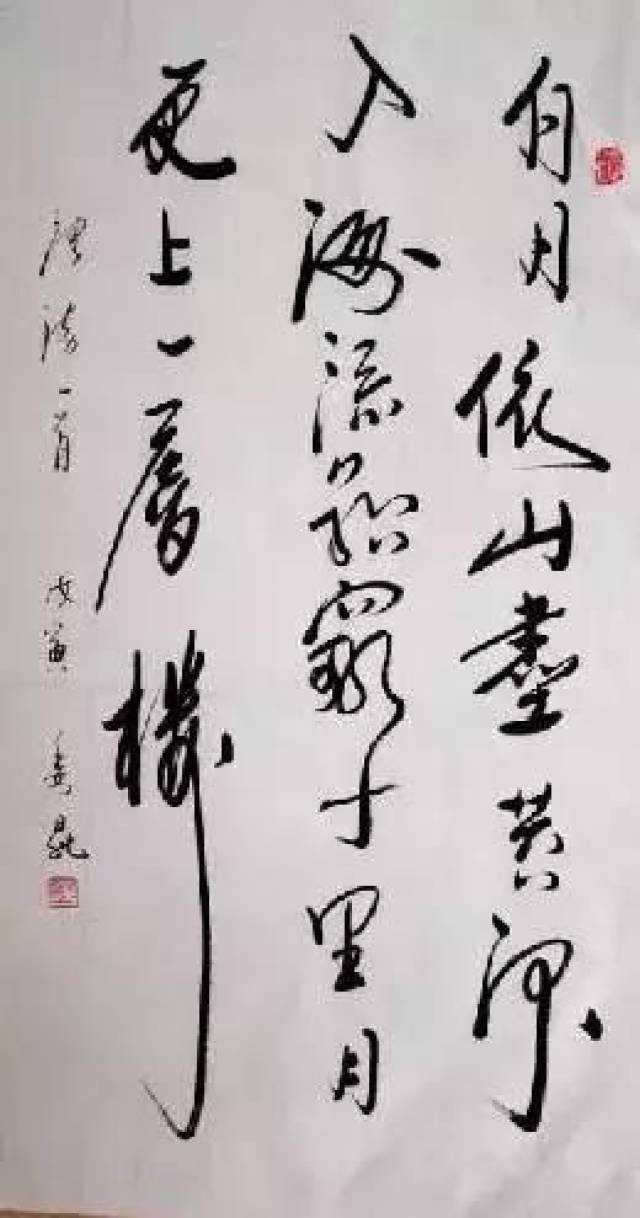 白日依山盡黃河
入海流欲窮千里目
更上一層樓
唐诗一首 戊寅 姜昆